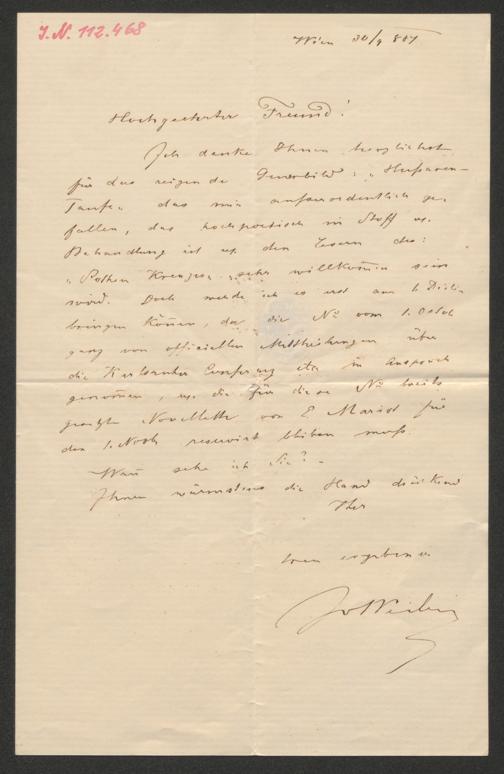 I.N. 112.468
Wien 30/9 887
Hochgeehrter Freund!
Ich danke Ihnen herzlichst
für das reizende Genrebild: „Husaren-
Taufe“ das mir außerordentlich ge-
fallen, das hochpoetisch in Stoff u.
Behandlung ist u. den Lesern des:
„Rothen Kreuzes“ sehr willkom̄en sein
wird. Doch werde ich es erst am 1.
bringen kön̄en, da die No vom 1. Octob
ganz von officiellen Mittheilungen über
die Karlsruher Conferenz etc in Anspruch
genom̄en, u. die für diese No bereits
gesetzte Novellette von E Mariot für
den 1. Novb reservirt bleiben muß.
Wan̄ sehe ich Sie? –
Ihnen wärmstens die Hand drückend
Ihr
treu ergebener